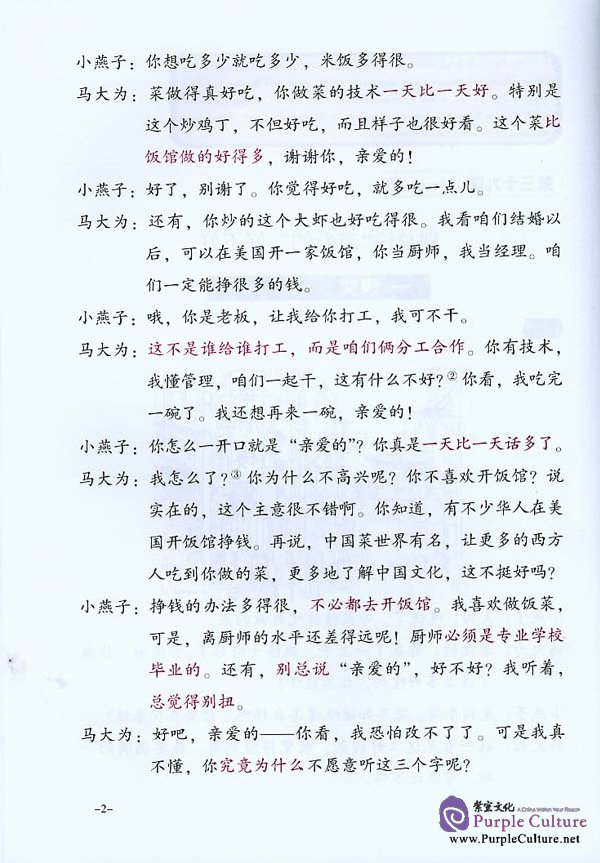 小燕子：你想吃多少就吃多少，米饭多得很。
马大为：菜做得真好吃，你做菜的技术一天比一天好。特别是
这个炒鸡丁，不但好吃，而且样子也很好看。这个菜比
饭馆做的好得多，谢谢你，亲爱的！
小燕子：好了，别谢了。你觉得好吃，就多吃一点儿。
马大为：还有，你炒的这个大虾也好吃得很。我看咱们结婚以
后，可以在美国开一家饭馆，你当厨师，我当经理。咱
们一定能挣很多的钱。
小燕子：哦，你是老板，让我给你打工，我可不干。
马大为：这不是谁给谁打工，而是咱们俩分工合作。你有技术，
我懂管理，咱们一起干，这有什么不好？②你看，我吃完
一碗了。我还想再来一碗，亲爱的！
小燕子：你怎么一开口就是“亲爱的”？你真是一天比一天话多了。
马大为：我怎么了？③你为什么不高兴呢？你不喜欢开饭馆？说
实在的，这个主意很不错啊。你知道，有不少华人在美
国开饭馆挣钱。再说，中国菜世界有名，让更多的西方
人吃到你做的菜，更多地了解中国文化，这不挺好吗？
小燕子：挣钱的办法多得很，不必都去开饭馆。我喜欢做饭菜，
可是，离厨师的水平还差得远呢！厨师必须是专业学校
毕业的。还有，别总说“亲爱的”，好不好？我听着，
总觉得别扭。
马大为：好吧，亲爱的——你看，我恐怕改不了了。可是我真
不懂，你究竟为什么不愿意听这三个字呢？
-2-
紫宸文化 A China Within Your Reach
Purple Culture
www.PurpleCulture.net